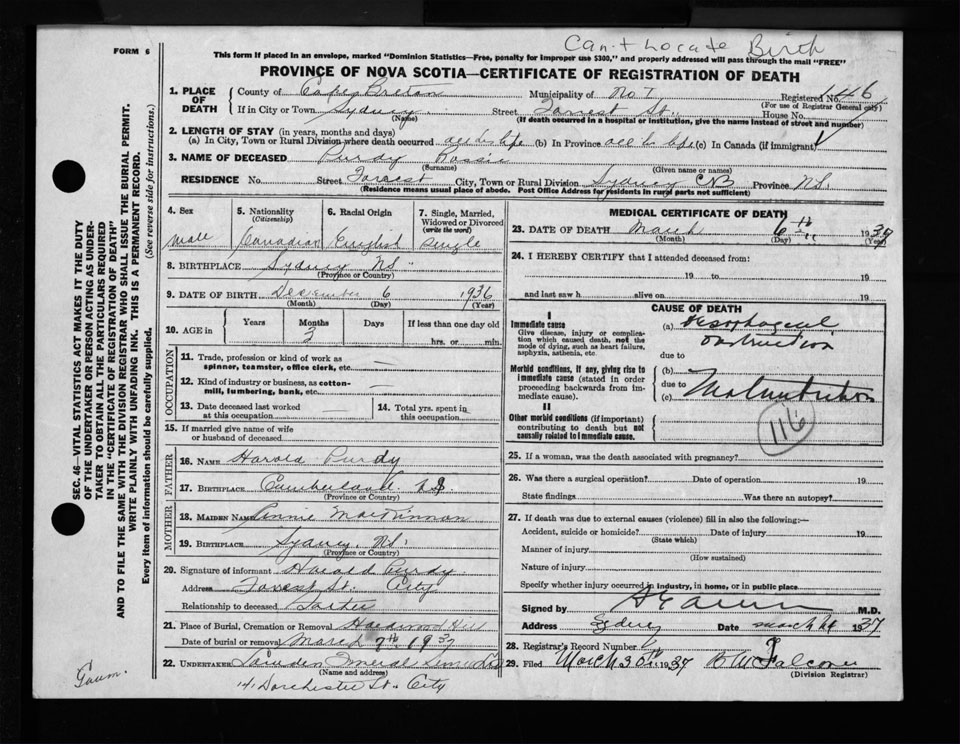 Can't Locate Birth
FORM 6
This form if placed in an envelope, marked "Dominion Statistics—Free, penalty for improper use $300," and properly addressed will pass through the mail "FREE"
PROVINCE OF NOVA SCOTIA—CERTIFICATE OF REGISTRATION OF DEATH
1. PLACE OF DEATH
County of Cape Breton Municipality of No 1 Registered No. 146
(For use of Registrar General only)
If in City or Town Sydney Street Forrest St. House No.
(Name) (If death occurred in a hospital or institution, give the name instead of street and number)
2. LENGTH OF STAY (in years, months and days)
(a) In City, Town or Rural Division where death occurred all his life (b) In Province all his life (c) In Canada (if immigrant)
3. NAME OF DECEASED Purdy
(Surname) (Given name or names)
RESIDENCE No. Street Forest City, Town or Rural Division Sydney CB Province NS.
(Residence means usual place of abode. Post Office Address for residents in rural parts not sufficient)
4. Sex 5. Nationality 6. Racial Origin 7. Single, Married, Widowed or Divorced
(Citizenship) (write the word)
Male Canadian English Single
8. BIRTHPLACE Sydney NS
(Province or Country)
9. DATE OF BIRTH December 6 1936
(Month) (Day) (Year)
10. AGE in Years Months Days If less than one day old
3
hrs. or min.
OCCUPATION
11. Trade, profession or kind of work as spinner, teamster, office clerk, etc. —
12. Kind of industry or business, as cotton-mill, lumbering, bank, etc. —
13. Date deceased last worked at this occupation — 14. Total yrs. spent in this occupation —
15. If married give name of wife or husband of deceased
FATHER
16. NAME Harold Purdy
17. BIRTHPLACE Cumberland N.S
(Province or Country)
MOTHER
18. MAIDEN NAME Annie MacKinnon
19. BIRTHPLACE Sydney, NS.
(Province or Country)
20. Signature of informant Harold Purdy
Address Forest St. City
Relationship to deceased Father
21. Place of Burial, Cremation or Removal Hardwood Hill
Date of burial or removal March 7th 1937
22. UNDERTAKER
(Name and address)
Dorchester St. City
MEDICAL CERTIFICATE OF DEATH
23. DATE OF DEATH March 6th 1937
(Month) (Day) (Year)
24. I HEREBY CERTIFY that I attended deceased from:
19 to 19
and last saw h alive on 19
CAUSE OF DEATH
I
Immediate cause
Give disease, injury or complication which caused death, not the mode of dying, such as heart failure, asphyxia, asthenia, etc.
(a) Oesophageal obstruction
due to
Morbid conditions, if any, giving rise to immediate cause (stated in order proceeding backwards from immediate cause).
(b)
due to
(c) Malnutrition
II
Other morbid conditions (if important) contributing to death but not causally related to immediate cause.
116
25. If a woman, was the death associated with pregnancy?
26. Was there a surgical operation? Date of operation 19
State findings Was there an autopsy?
27. If death was due to external causes (violence) fill in also the following:—
Accident, suicide or homicide? Date of injury 19
(State which)
Manner of injury
(How sustained)
Nature of injury
Specify whether injury occurred in industry, in home, or in public place
Signed by M.D.
Address Sydney Date March 1937
28. Registrar's Record Number
29. Filed March 30th 1937
(Division Registrar)
SEC. 46—VITAL STATISTICS ACT MAKES IT THE DUTY
OF THE UNDERTAKER OR PERSON ACTING AS UNDER-
TAKER TO OBTAIN ALL THE PARTICULARS REQUIRED
IN THE "CERTIFICATE OF REGISTRATION OF DEATH"
AND TO FILE THE SAME WITH THE DIVISION REGISTRAR WHO SHALL ISSUE THE BURIAL PERMIT.
WRITE PLAINLY WITH UNFADING INK. THIS IS A PERMANENT RECORD.
Every item of information should be carefully supplied. (See reverse side for instructions.)